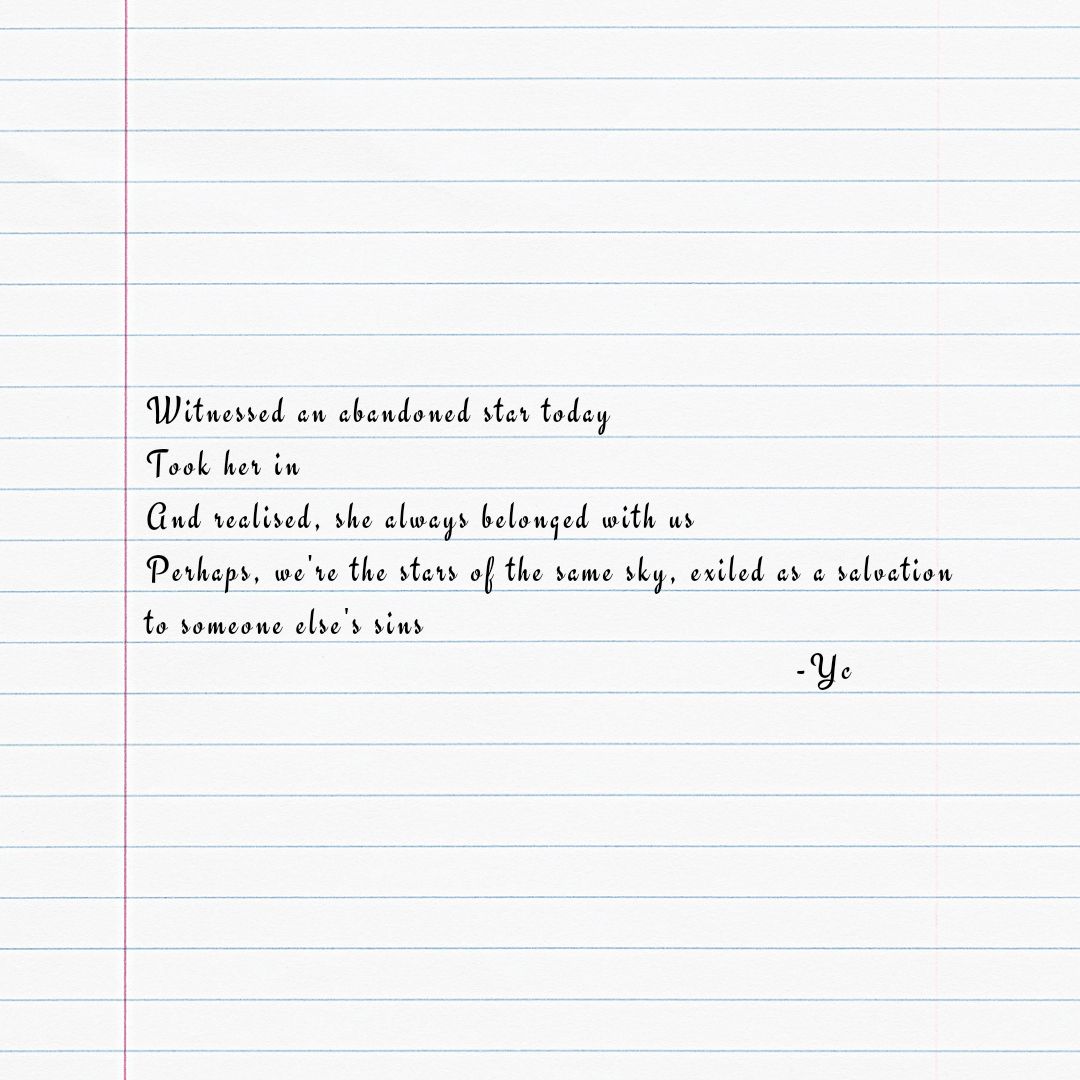 Witnessed an abandoned star today
Took her in
And realised, she always belonged with us
Perhaps, we're the stars of the same sky, exiled as a salvation
to someone else's sins
-Yc